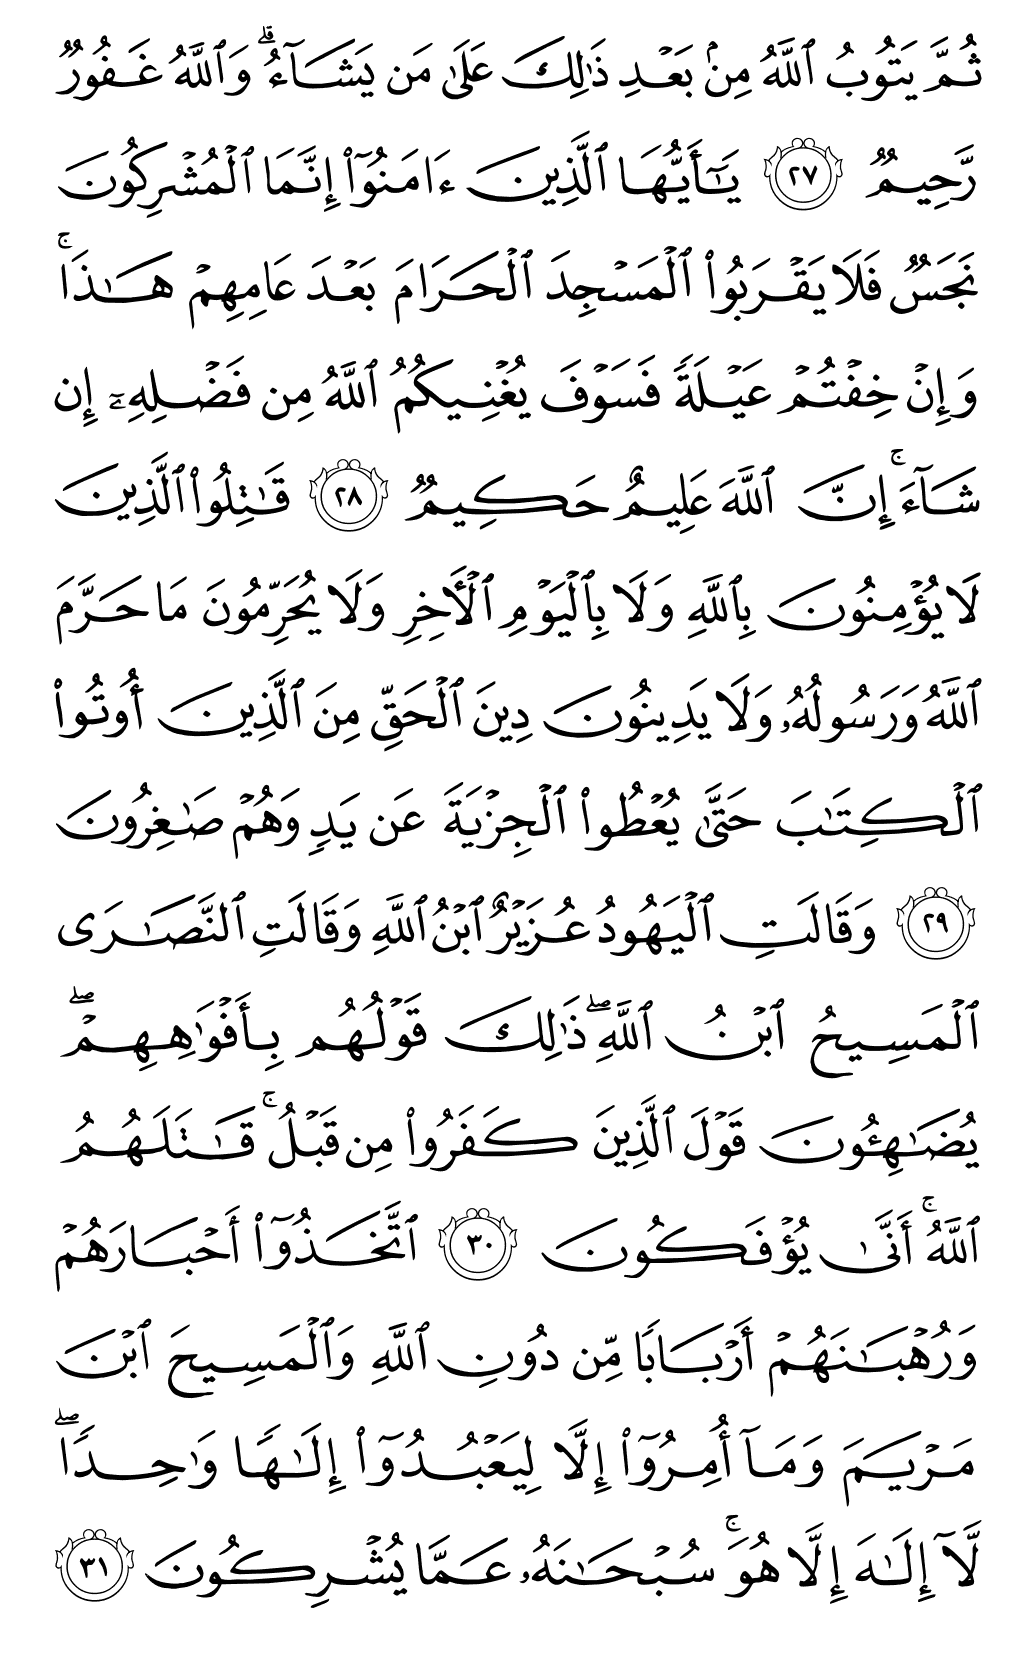 ثُمَّ يَتُوبُ ٱللَّهُ مِنۢ بَعۡدِ ذَٰلِكَ عَلَىٰ مَن يَشَآءُۗ وَٱللَّهُ غَفُورٞ
رَّحِيمٞ ٢٧ يَٰٓأَيُّهَا ٱلَّذِينَ ءَامَنُوٓاْ إِنَّمَا ٱلۡمُشۡرِكُونَ
نَجَسٞ فَلَا يَقۡرَبُواْ ٱلۡمَسۡجِدَ ٱلۡحَرَامَ بَعۡدَ عَامِهِمۡ هَٰذَاۚ
وَإِنۡ خِفۡتُمۡ عَيۡلَةٗ فَسَوۡفَ يُغۡنِيكُمُ ٱللَّهُ مِن فَضۡلِهِۦٓ إِن
شَآءَۚ إِنَّ ٱللَّهَ عَلِيمٌ حَكِيمٞ ٢٨ قَٰتِلُواْ ٱلَّذِينَ
لَا يُؤۡمِنُونَ بِٱللَّهِ وَلَا بِٱلۡيَوۡمِ ٱلۡأٓخِرِ وَلَا يُحَرِّمُونَ مَا حَرَّمَ
ٱللَّهُ وَرَسُولُهُۥ وَلَا يَدِينُونَ دِينَ ٱلۡحَقِّ مِنَ ٱلَّذِينَ أُوتُواْ
ٱلۡكِتَٰبَ حَتَّىٰ يُعۡطُواْ ٱلۡجِزۡيَةَ عَن يَدٖ وَهُمۡ صَٰغِرُونَ
٢٩ وَقَالَتِ ٱلۡيَهُودُ عُزَيۡرٌ ٱبۡنُ ٱللَّهِ وَقَالَتِ ٱلنَّصَٰرَى
ٱلۡمَسِيحُ ٱبۡنُ ٱللَّهِۖ ذَٰلِكَ قَوۡلُهُم بِأَفۡوَٰهِهِمۡۖ
يُضَٰهِـُٔونَ قَوۡلَ ٱلَّذِينَ كَفَرُواْ مِن قَبۡلُۚ قَٰتَلَهُمُ
ٱللَّهُۚ أَنَّىٰ يُؤۡفَكُونَ ٣٠ ٱتَّخَذُوٓاْ أَحۡبَارَهُمۡ
وَرُهۡبَٰنَهُمۡ أَرۡبَابٗا مِّن دُونِ ٱللَّهِ وَٱلۡمَسِيحَ ٱبۡنَ
مَرۡيَمَ وَمَآ أُمِرُوٓاْ إِلَّا لِيَعۡبُدُوٓاْ إِلَٰهٗا وَٰحِدٗاۖ
لَّآ إِلَٰهَ إِلَّا هُوَۚ سُبۡحَٰنَهُۥ عَمَّا يُشۡرِكُونَ ٣١